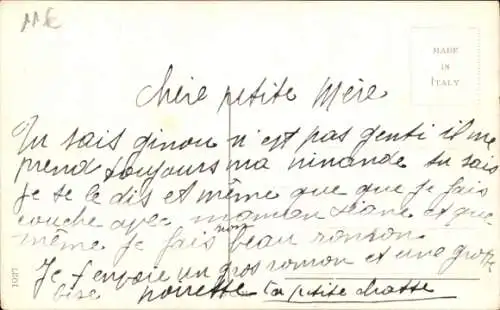 11 €
MADE
IN
ITALY
Chére petite Mére
Tu sais ginou n'est pas genti il me
prend toujours ma ninande tu sais
je te le dis et même que que je fais
couche avec maman Liane et que
même je fais mon beau ronron
Je t'envoie un gros ronron et une gross
bise
nonette ta petite chatte
1027